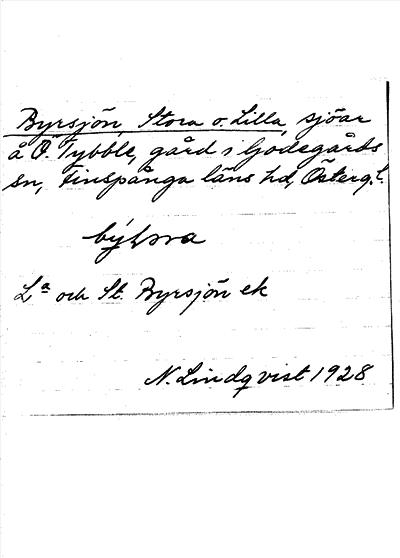 Byrsjön, Stora o. Lilla, sjöar
å Ö. Tybble, gård i Godegårds
sn, Finspånga läns hd, Österg.l.
Lª och St. Byrsjön ek
N. Lindqvist 1928